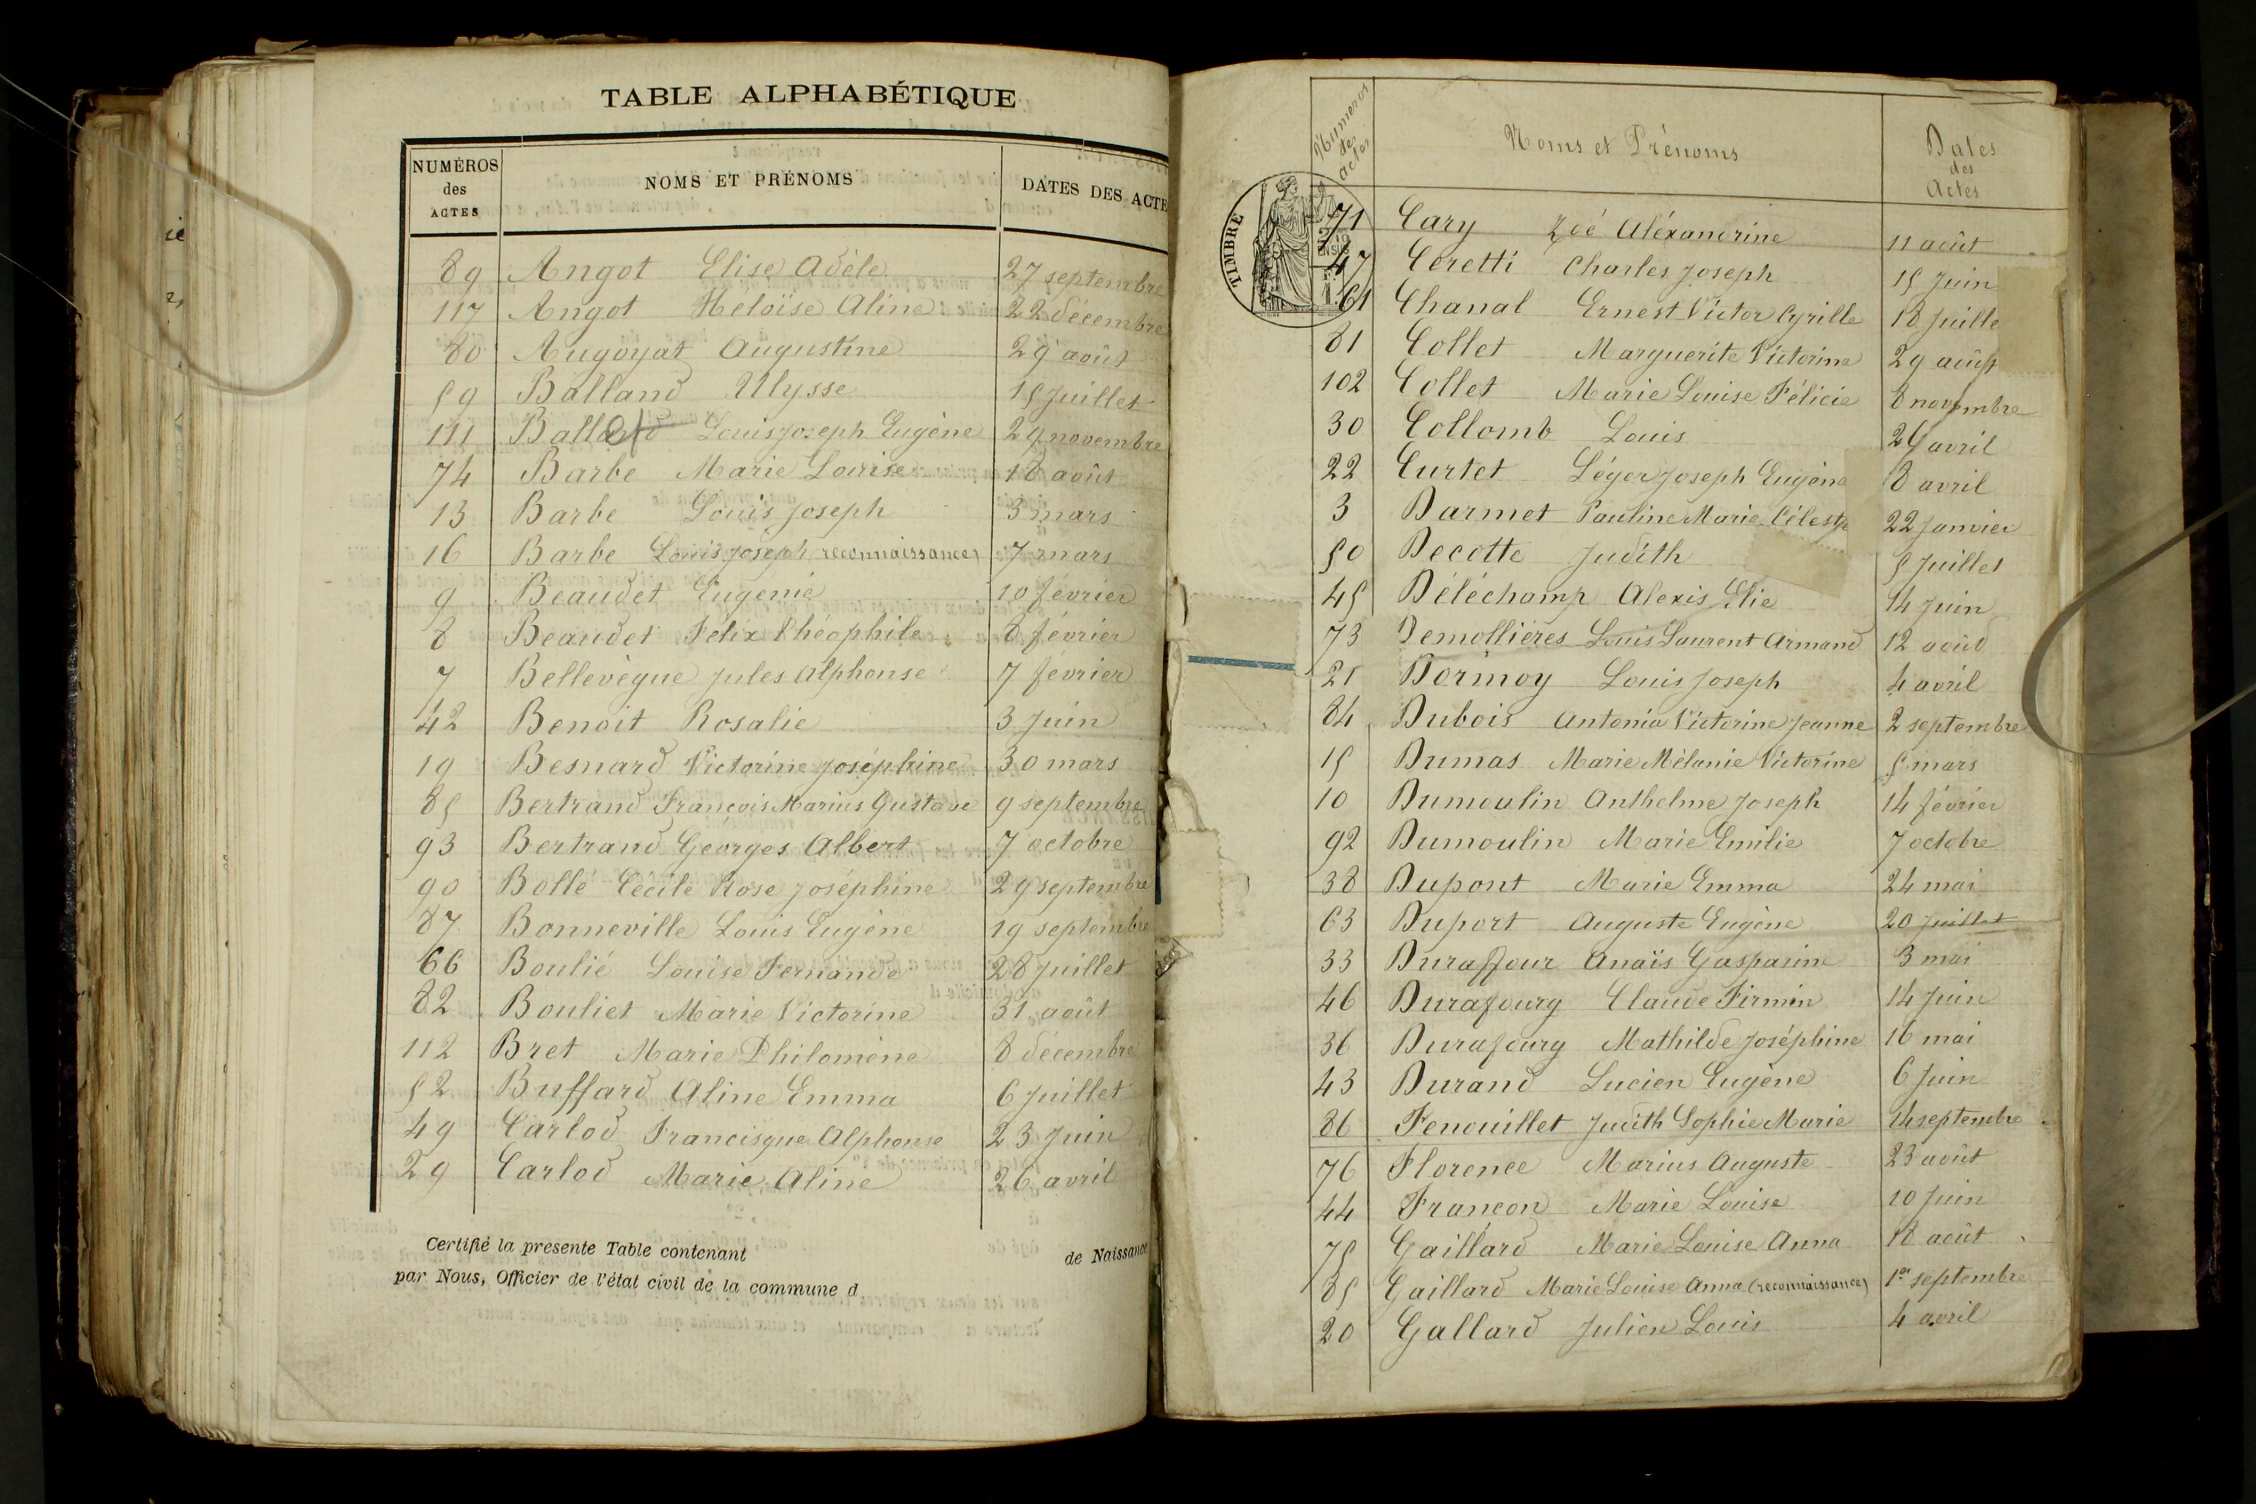 TABLE ALPHABÉTIQUE
NUMÉROS des ACTES NOMS ET PRÉNOMS DATES DES ACTE
89 Angot Elise Adèle 27 septembre
117 Angot Héloïse Aline 22 décembre
80 Augoyat Augustine 29 août
59 Balland Ulysse 15 Juillet
111 Ballet Louis Joseph Eugène 29 novembre
74 Barbe Marie Louise 18 août
13 Barbe Louis Joseph 3 mars
16 Barbe Louis Joseph (reconnaissance) 7 mars
9 Beaudet Eugénie 10 février
8 Beaudet Félix Théophile 8 février
7 Bellevègue Jules Alphonse 7 février
42 Benoit Rosalie 3 Juin
19 Besnard Victorine Joséphine 30 mars
85 Bertrand François Marius Gustave 9 septembre
93 Bertrand Georges Albert 7 octobre
90 Bollé Cécile Rose Joséphine 29 septembre
87 Bonneville Louis Eugène 19 septembre
66 Boulié Louise Fernande 28 Juillet
82 Bouliet Marie Victorine 31 août
112 Bret Marie Philomène 8 décembre
52 Buffard Aline Emma 6 Juillet
49 Carlod Francisque Alphonse 23 Juin
29 Carlod Marie Aline 26 avril
Certifié la presente Table contenant de Naissance
par Nous, Officier de l'état civil de la commune d
Numéros des actes Noms et Prénoms Dates des Actes
TIMBRE
71 Cary Zoé Aléxandrine 11 août
47 Ceretti Charles Joseph 15 Juin
61 Chanal Ernest Victor Cyrille 18 Juille
81 Collet Marguerite Victorine 29 août
102 Collet Marie Louise Félicie 8 novembre
30 Collomb Louis 29 avril
22 Curtet Léger Joseph Eugène 8 avril
3 Darmet Pauline Marie Céleste 22 Janvier
50 Decotte Judith 5 Juillet
45 Déléchamp Alexis Elie 14 Juin
73 Demollières Louis Laurent Armand 12 août
21 Dormoy Louis Joseph 4 avril
84 Dubois Antonia Victorine Jeanne 2 septembre
15 Dumas Marie Mélanie Victorine 5 mars
10 Dumoulin Anthelme Joseph 14 février
92 Dumoulin Marie Emilie 7 octobre
38 Dupont Marie Emma 24 mai
63 Duport Auguste Eugène 20 Juillet
33 Duraffour Anaïs Gasparine 3 mai
46 Durafourg Claude Firmin 14 Juin
36 Durafourg Mathilde Joséphine 16 mai
43 Durand Lucien Eugène 6 Juin
86 Fenouillet Judith Sophie Marie 14 septembre
76 Florence Marius Auguste 23 août
44 Françon Marie Louise 10 Juin
75 Gaillard Marie Louise Anna 18 août
85 Gaillard Marie Louise Anna (reconnaissance) 1er septembre
20 Gallard Julien Louis 4 avril